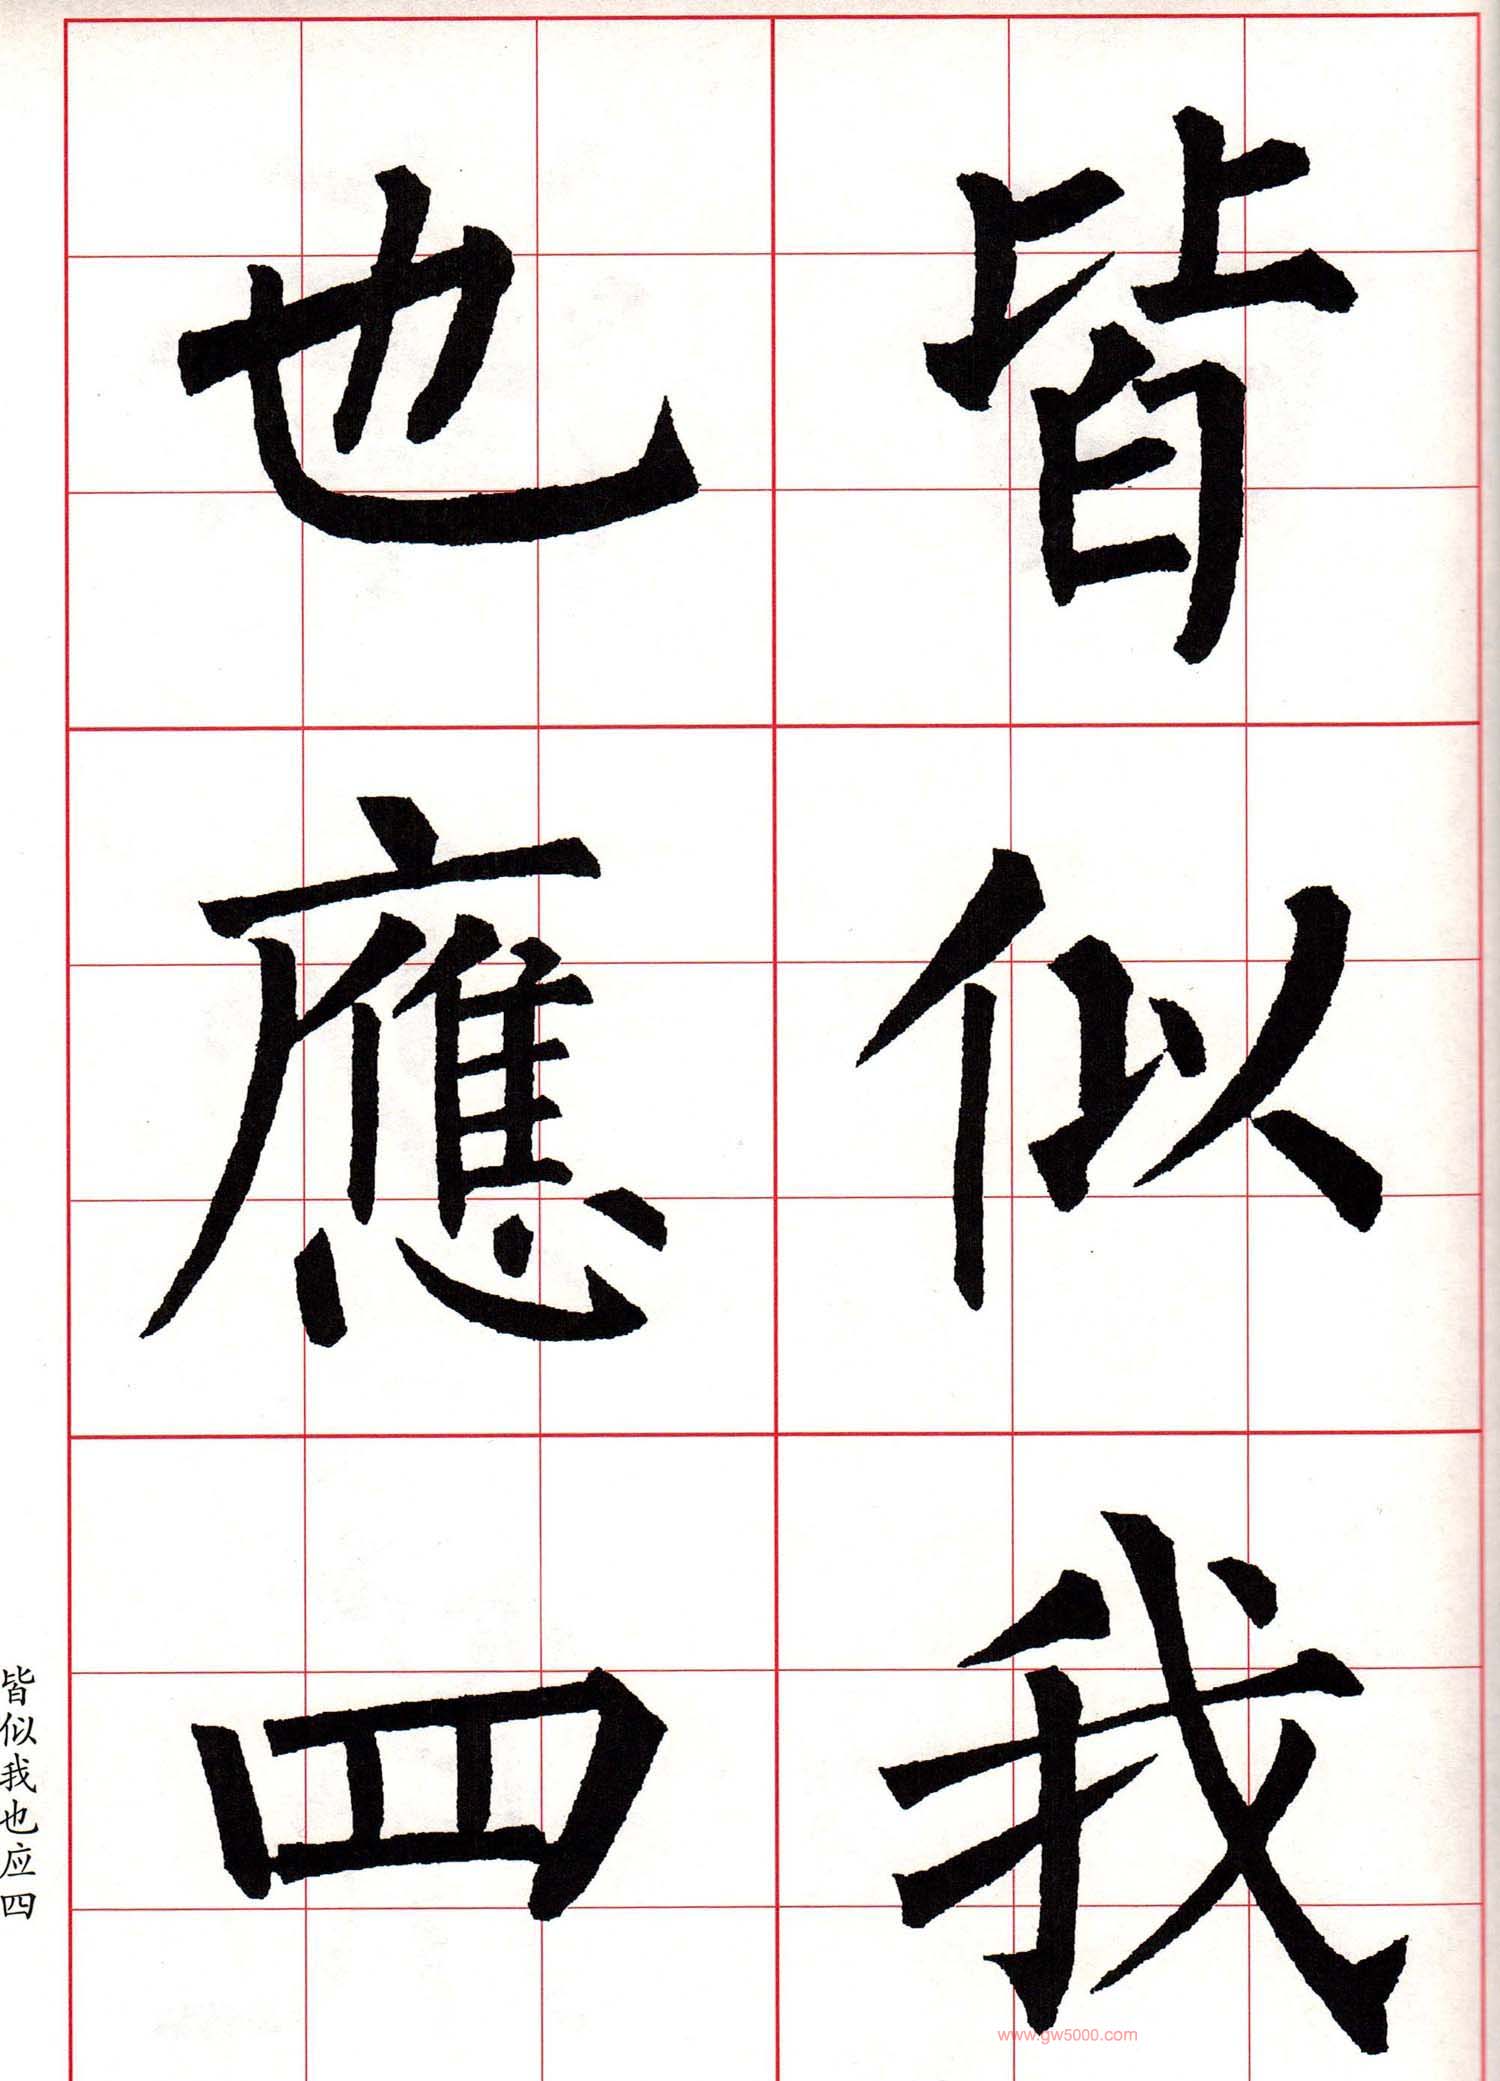 皆似我
也應四
皆似我也应四
www.gw5000.com